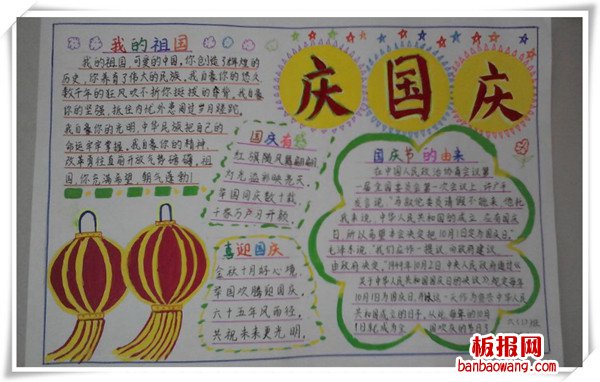 我的祖国
我的祖国,可爱的中国,你创造了辉煌的
历史,你养育了伟大的民族。我自豪你的悠久
数千年的狂风吹不折你挺拔的脊背,我自豪
你的坚强,抵住内忧外患闯过岁月蹉跎。
我自豪你的光明,中华民族把自己的
命运牢牢掌握。我自豪你的精神,
改革勇往直前开放气势磅礴。祖
国,你充满希望、朝气蓬勃!
庆国庆
国庆有感
红旗随风飘翩翩
为光溢彩映亮天。
举国同庆数十载,
十李万户习开颜
喜迎国庆
金秋十月好心境,
举国欢腾迎国庆。
六十五年风雨径,
共祝未来更光明。
国庆节的由来
在中国人民政治协商会议第
一届全国委员会第一次会议上,许广平
发言说:"马叙伦委员请假不能来,他托
我来说,中华人民共和国的成立,应有国庆
日,所以希望本会决定把10月1日定为国庆日。"
毛泽东说:"我们应作一提议,向政府建议,
由政府决定。"1949年10月2日,中央人民政府通过《
关于中华人民共和国国庆日的决议》,规定每年
10月1日为国庆日,并以这一天作为宣告中华人民
共和国成立的日子。从此,每年的10月
1日就成为全国欢庆的节日了
六(1)班
板报网
banbaowang.com